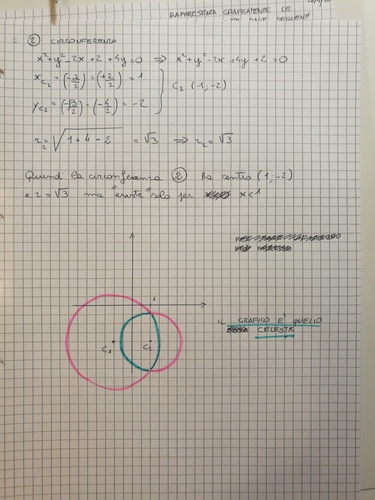 RAPPRESENTA GRAFICAMENTE LE
② CIRCONFERENZA
x²+y²-2x+2+4y=0 ⇒ x²+y²-2x+4y+2=0
x_C₂=(-a/2)=(+2/2)=1
C₂ (1;-2)
y_C₂=(-b/2)=(-4/2)=-2
r₂=√1+4-2 =√3 ⇒ r₂=√3
Quindi la circonferenza ② ha centro (1;-2)
e r=√3 ma "esiste" solo per x<1
1
IL GRAFICO E' QUELLO
CELESTE
C₁
C₂